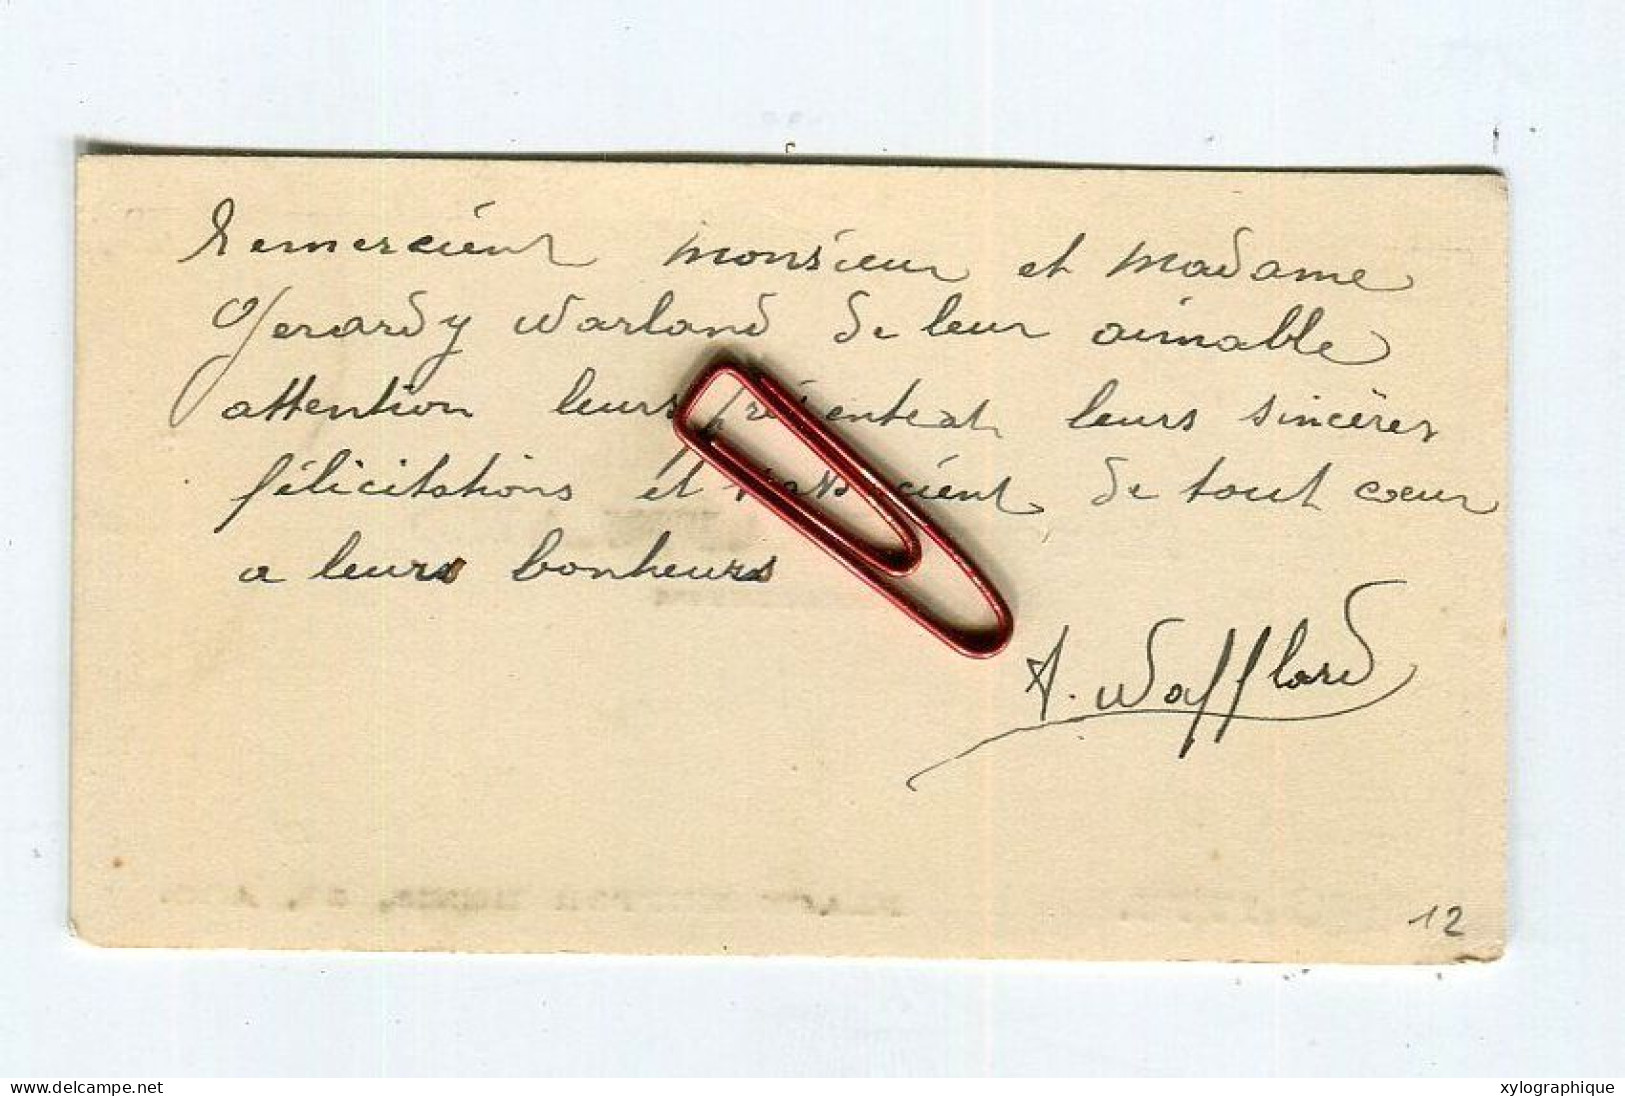 Remercient monsieur et madame
Gerardy Warland de leur aimable
attention leurs présentent leurs sincères
félicitations et s'associent de tout cœur
a leurs bonheurs
A. Wafflard
12
www.delcampe.net
xylographique